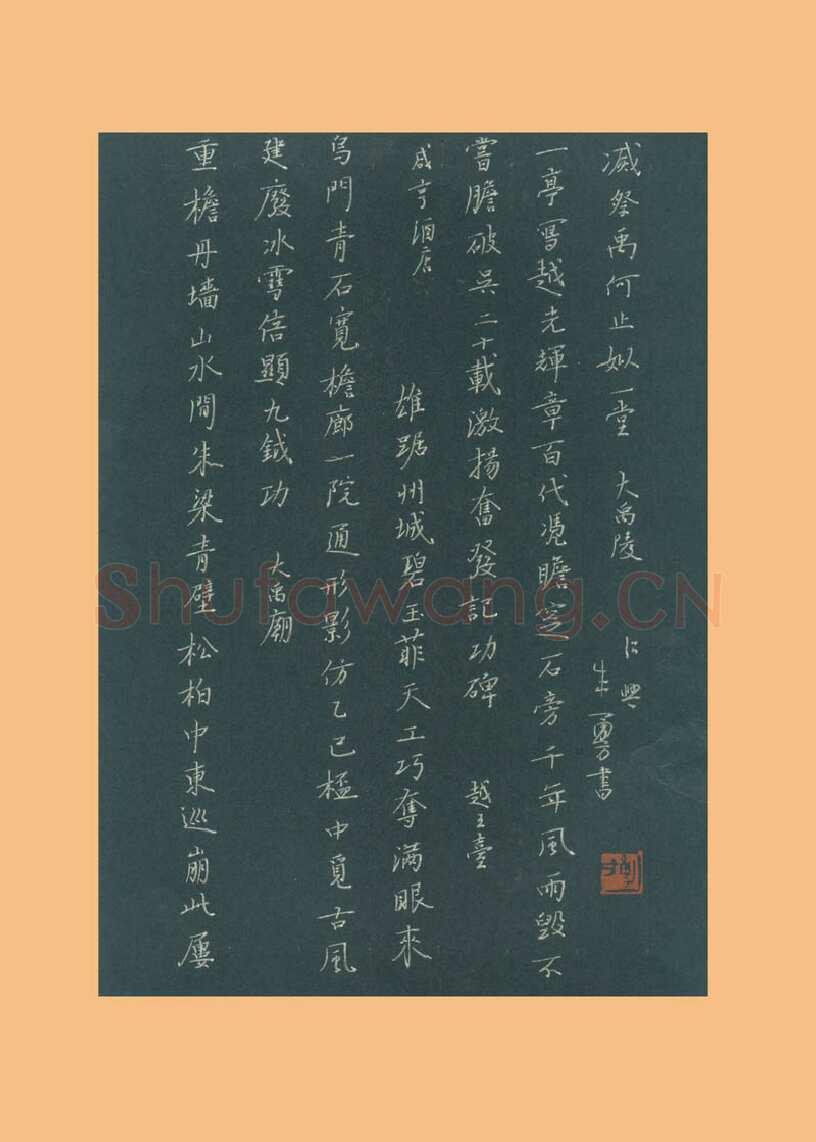 重檐丹墻山水間朱梁青壁松柏中東巡崩此屢
建廢冰雪信顯九鉞功 大禹廟
烏門青石寬檐廊一院通形影仿乙己榲中覓古風
咸亨酒店 雄踞州城碧玉菲天工巧奪滿眼來
嘗膽破吳二十載激揚奮發記功碑 越王臺
一亭寫越光輝章百代憑瞻窆石旁千年風雨毀不
滅祭禹何止姒一堂 大禹陵 仁興
朱勇書
Shufawang.CN